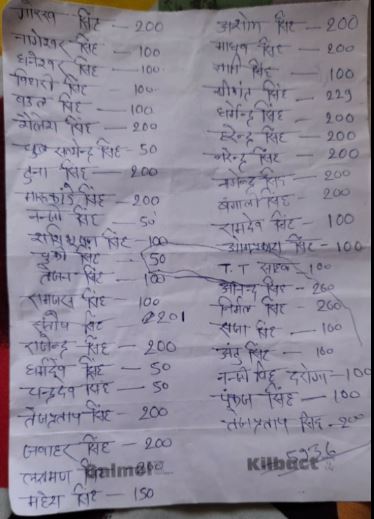 गोरख सिंह - 200
नागेश्वर सिंह - 100
धनेश्वर सिंह - 100
सिंह 100
सिंह - 100
शैलेश सिंह - 200
सिंह - 50
टुना सिंह - 200
सिंह - 200
नन्जी सिंह - 50
शशिभूषण सिंह - 100
सिंह - 50
सिंह - 100
रामजस सिंह - 100
सिंह 201
राजेन्द्र सिंह - 200
धर्मदेव सिंह - 50
चन्द्रदेव सिंह - 50
तेजप्रताप सिंह - 200
जवाहर सिंह - 200
लक्ष्मण सिंह
महेश सिंह - 150
अशोक सिंह - 200
माधव सिंह - 200
सिंह 100
सिंह - 229
धर्मेन्द्र सिंह - 200
हरेन्द्र सिंह - 200
नरेन्द्र सिंह - 200
नगेन्द्र सिंह - 200
बंगाली सिंह - 200
रामदेव सिंह - 100
सिंह - 100
T.T साहब 100
आनन्द सिंह - 200
निर्मल सिंह - 200
राजा सिंह - 100
सिंह - 100
नन्जी सिंह दरोगा - 100
पंकज सिंह - 100
तेजप्रताप सिंह - 200
5936
Balmer
Kilbact